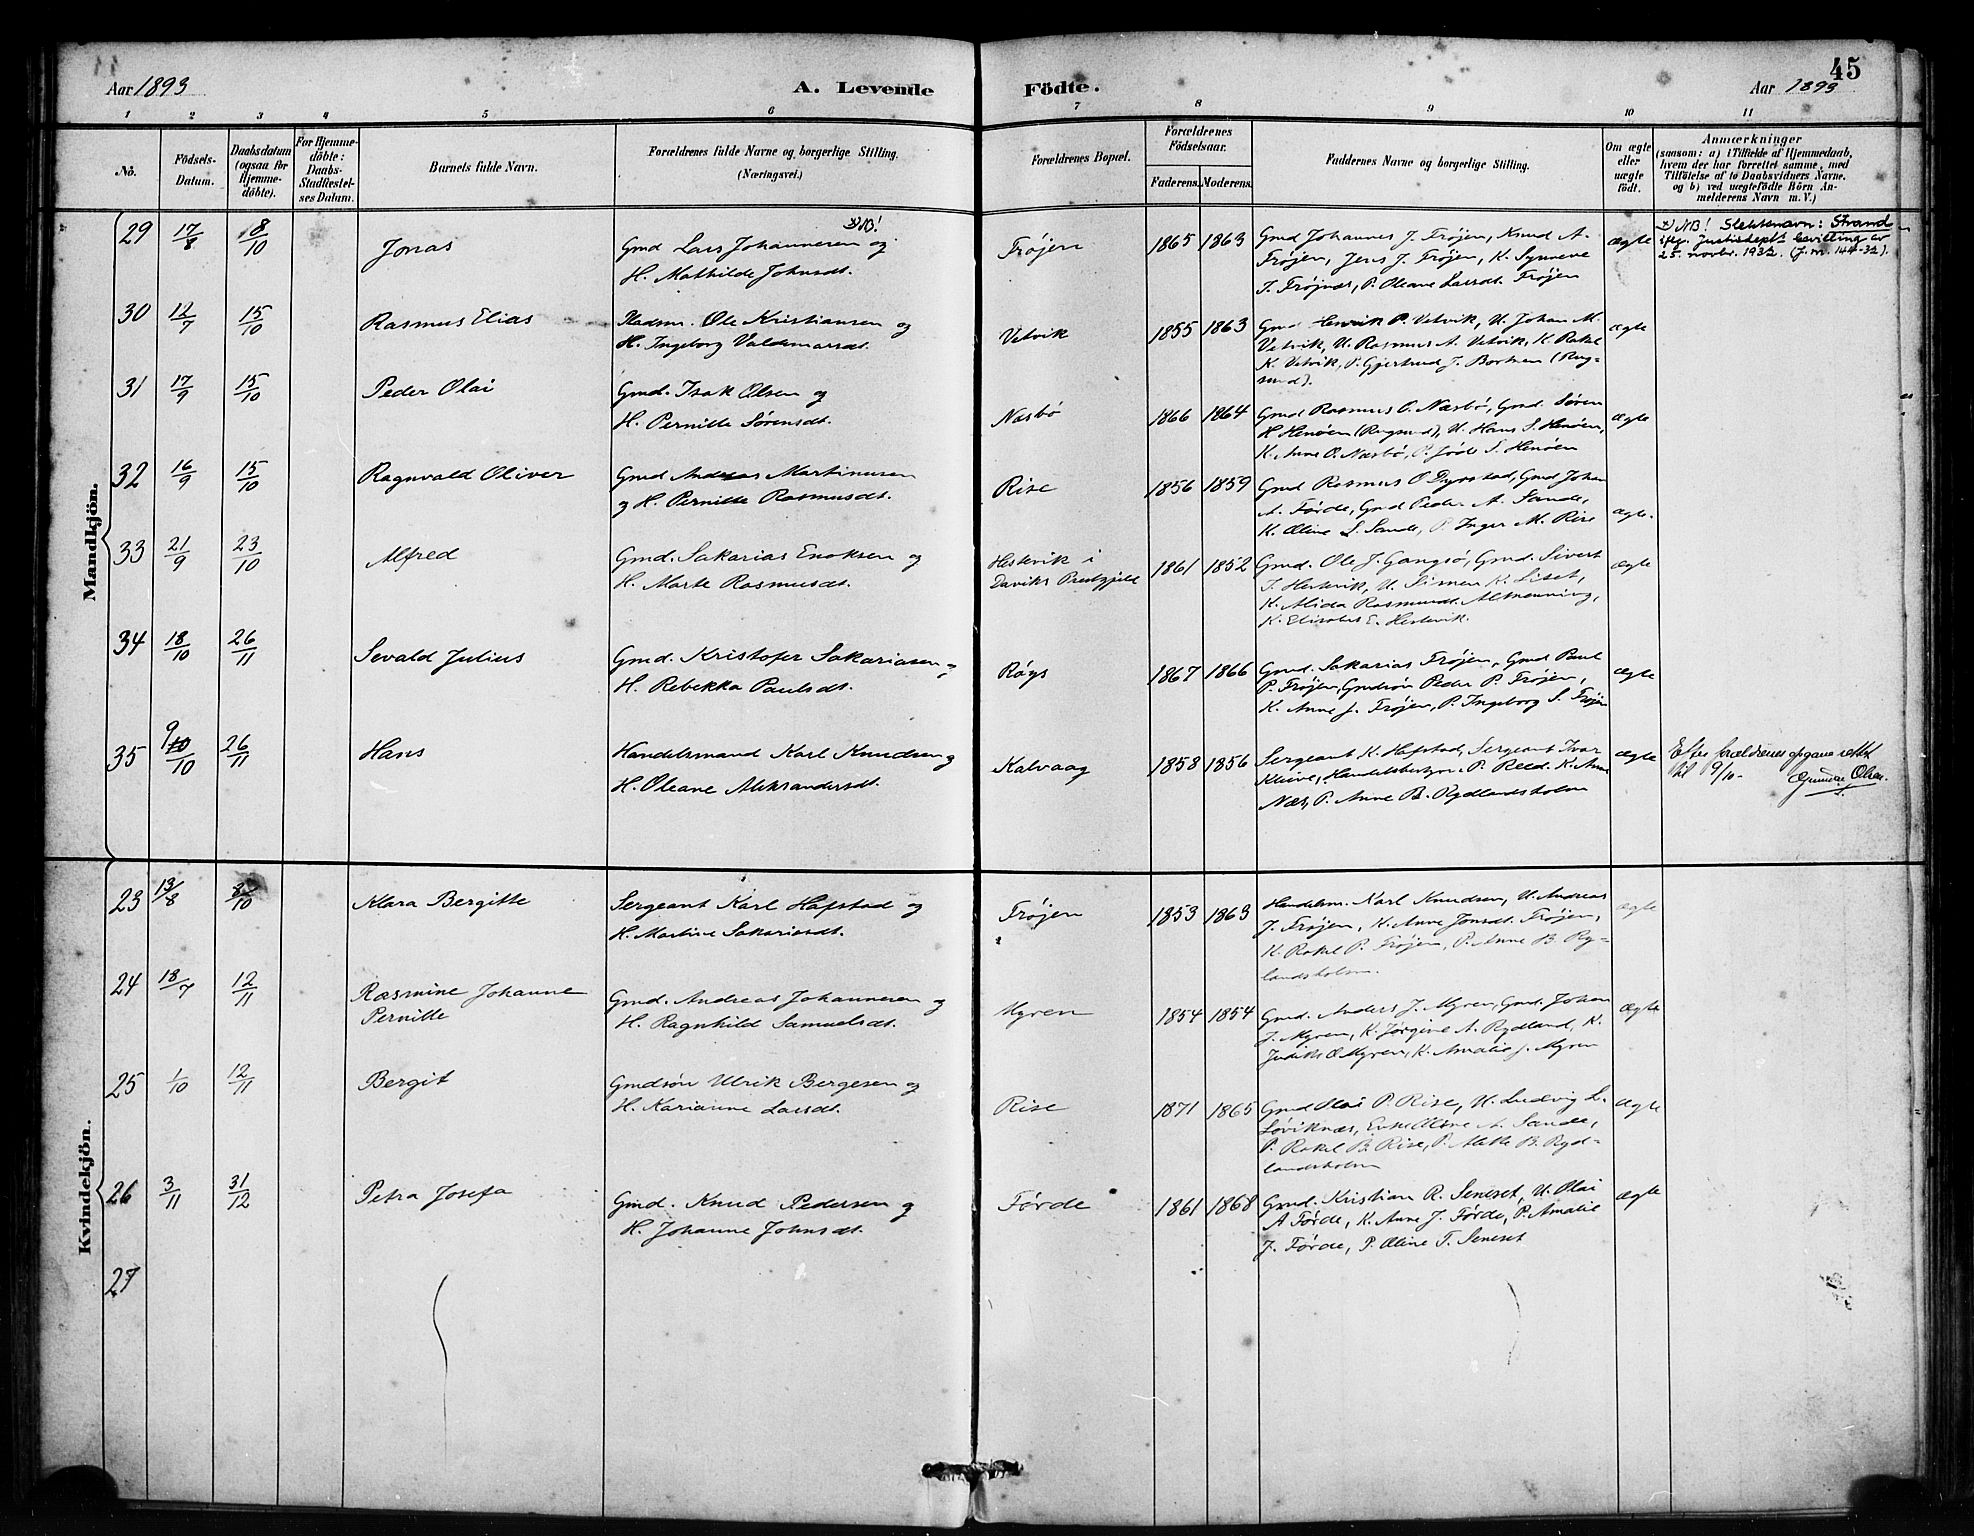 45
Aar 1893
A. Levende
Födte.
Aar 1893
1 2 3 4 5 6 7 8 9 10 11
No.
Födsels-
Datum.
Daabsdatum
(ogsaa for
Hjemme-
döbte).
For Hjemme-
döbte:
Daabs-
Stadfæstel-
ses Datum.
Barnets fulde Navn.
Forældrenes fulde Navne og borgerlige Stilling.
(Næringsvei.)
Forældrenes Bopæl.
Forældrenes
Födselsaar.
Faderens. Moderens.
Faddernes Navne og borgerlige Stilling.
Om ægte
eller
uægte
födt.
Anmærkninger
(saasom: a) i Tilfælde af Hjemmedaab,
hvem der har forrettet samme, med
Tilföielse af to Daabsvidners Navne.
og b) ved uægtefödte Börn An-
melderens Navn m. V.)
Mandkjön.
29 17/8 8/10 Jonas
x) NB!
Gmd Lars Johannesen og
H. Mathilde Johnsdt.
Frøjen 1865 1863
Gmd Johannes J. Frøjen, Knud A.
Frøjen, Jens J. Frøjen, K. Synneve
T. Frøjnæs, P. Oleane Larsdt. Frøjen
ægte
x) NB! Slektsnavn: Strand
ifg. Justisdept.s bevilling av
25. novbr. 1932. (J.nr. 144-32).
30 12/7 15/10 Rasmus Elias
Pladsm. Ole Kristiansen og
H. Ingeborg Valdemarsdt.
Vetvik 1855 1863
Gmd Henrik P. Vetvik, U. Johan M.
Vetvik, U. Rasmus A. Vetvik, K. Rakel
K. Vetvik, P. Gjertrud J. Bortnen (Rug-
sund).
ægte
31 17/9 15/10 Peder Olai
Gmd. Isak Olsen og
H. Pernille Sørensdt.
Næsbø 1866 1864
Gmd Rasmus O. Næsbø, Gmd. Søren
H Henøen (Rugsund), U. Hans S. Henøen,
K. Anne O. Næsbø, P. S. Henøen
ægte
32 16/9 15/10 Ragnvald Oliver
Gmd Andreas Martinusen
og H. Pernille Rasmusdt.
Rise 1856 1859
Gmd Rasmus O Dyrstad, Gmd Johan
A. Førde, Gmd Peder A. Sande,
K. Oline S. Sande, P. Inger M. Rise
ægte.
33 21/9 23/10 Alfred
Gmd. Sakarias Enoksen og
H. Marte Rasmusdt.
Hestvik i
Daviks Prestgjeld
1861 1852
Gmd. Ole J. Gangsø, Gmd. Sivert
T. Hestevik, U. Simen K. Liset,
K. Alida Rasmusdt. Almenning,
K. Elisabet E. Hestvik.
ægte
34 18/10 26/11 Sevald Julius
Gmd. Kristofer Sakariasen og
H. Rebekka Paulsdt.
Røys 1867 1866
Gmd. Sakarias Frøjen, Gmd Paul
P. Frøjen, Gmdsøn Peder P. Frøjen,
K. Anne J. Frøjen, P. Ingeborg S. Frøjen
ægte
35 9/10 26/11 Hans
Handelsmand Karl Knudsen og
H. Oleane Aleksandersdt.
Kalvaag 1858 1856
Sergeant K. Hafstad, Sergeant Ivar
Kleive, Handelsbestyr. P. Reed. K. Anne
Næs, P. Anne B. Rydlandsholm
ægte
Efter forældrenes opgave rettet
til 9/10 -
Olsen.
Kvindekjön.
23 13/8 8/10 Klara Bergitte
Sergeant Karl Hafstad og
H. Martine Sakariasdt.
Frøjen 1853 1863
Handelsm. Karl Knudsen, U. Andreas
J. Frøjen, K. Anne Jonsdt. Frøjen,
K. Rakel P. Frøjen, P. Anne B. Ry-
landsholm.
ægte
24 18/7 12/11 Rasmine Johanne
Pernille
Gmd. Andreas Johannesen og
H. Ragnhild Samuelsdt.
Myren 1854 1854
Gmd. Anders J. Myren, Gmd. Johan
J. Myren, K. Jørgine A. Rydland, K.
Judith O Myren, K. Amalie J. Myren
ægte
25 1/10 12/11 Bergit
Gmdsøn Ulrik Bergesen og
H. Karianne Larsdt.
Rise 1871 1865
Gmd Olai P. Rise, U. Ludvig L.
Løviknæs, Enke Oline A. Sande,
P. Rakel B. Rise, P. Alette B. Ryd-
landsholm
ægte
26 3/11 31/12 Petra Josefa
Gmd. Knud Pedersen og
H. Johanne Johnsdt.
Førde 1861 1868
Gmd. Kristian R. Seneset, U. Olai
A Førde, K. Anne J. Førde, P. Amalie
J. Førde, P. Oline T. Seneset
ægte
27